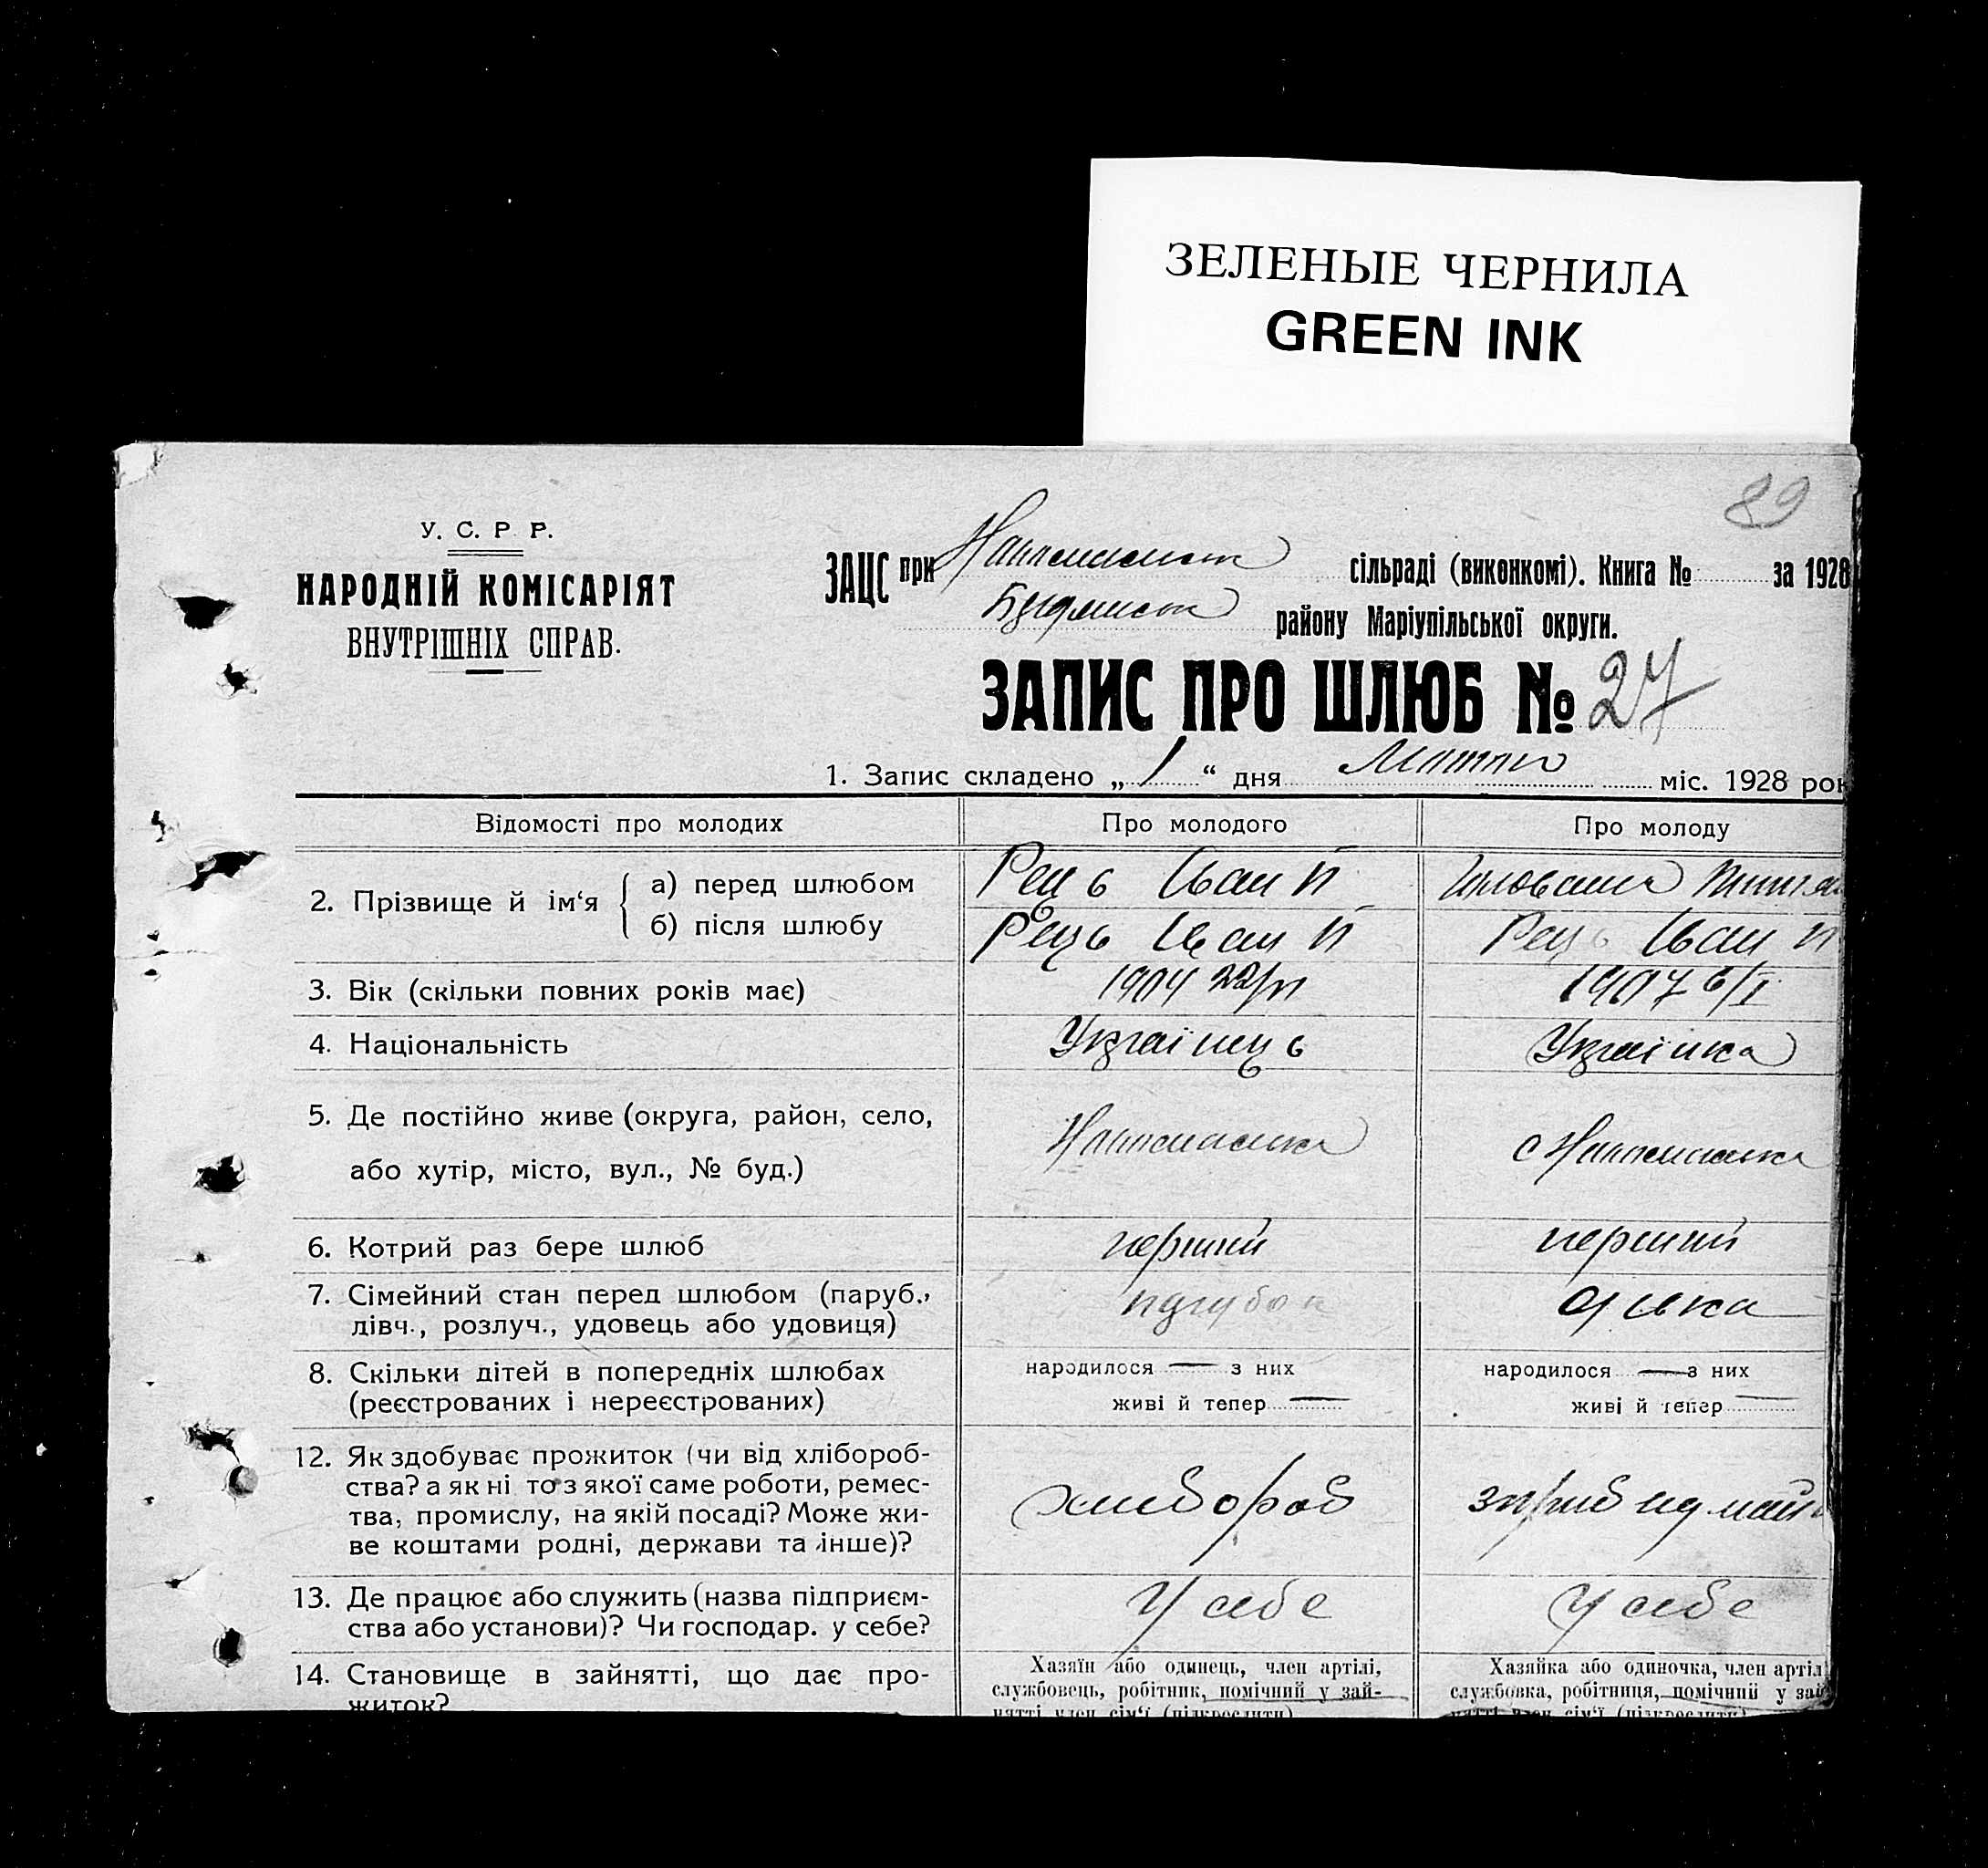 ЗЕЛЕНЫЕ ЧЕРНИЛА
GREEN INK
89
У. С. Р. Р.
НАРОДНІЙ КОМІСАРІЯТ
ВНУТРІШНІХ СПРАВ.
ЗАЦС при сільраді (виконкомі). Книга № за 1928
району Маріупільської округи.
ЗАПИС ПРО ШЛЮБ № 27
1. Запис складено „ 1 “ дня міс. 1928 рок
Відомості про молодих Про молодого Про молоду
2. Прізвище й ім‘я
а) перед шлюбом Рець Іван
б) після шлюбу Рець Іван Рець
3. Вік (скільки повних років має) 1904 1907 6/I
4. Національність Українець Українка
5. Де постійно живе (округа, район, село,
або хутір, місто, вул., № буд.)
6. Котрий раз бере шлюб перший перший
7. Сімейний стан перед шлюбом (паруб.,
дівч., розлуч., удовець або удовиця) парубок дівка
8. Скільки дітей в попередніх шлюбах
(реєстрованих і нереєстрованих)
народилося — з них
живі й тепер —
народилося — з них
живі й тепер —
12. Як здобуває прожиток (чи від хлібороб-
ства? а як ні то з якої саме роботи, ремес-
тва, промислу, на якій посаді? Може жи-
ве коштами родні, держави та інше)?
хлибороб
13. Де працює або служить (назва підприєм-
ства або установи)? Чи господар. у себе?
У себе У себе
14. Становище в зайнятті, що дає про-
житок?
Хазяїн або одинець, член артілі,
службовець, робітник, помічний у зай-
нятті член сім‘ї (підкреслити)
Хазяйка або одиночка, член артіл
службовка, робітниця, помічний у зай
нятті член сім‘ї (підкреслити)